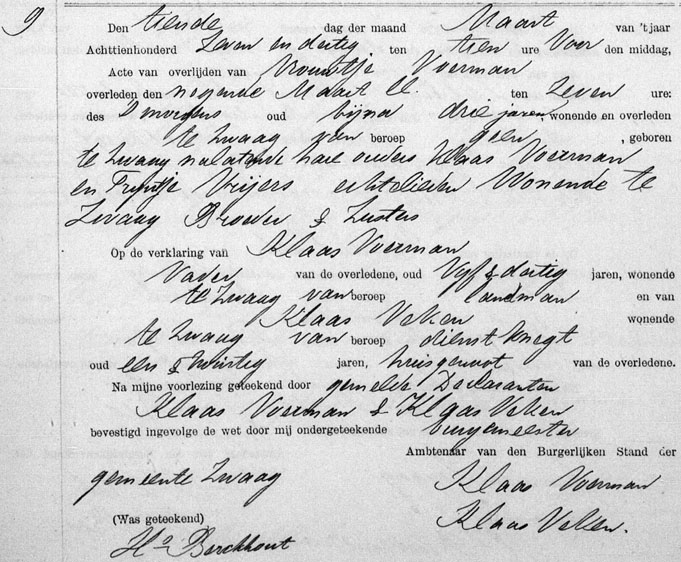 9
Den tiende dag der maand Maart van 't jaar
Achttienhonderd Zeven en dertig ten tien ure Voor den middag,
Acte van overlijden van Vrouwtje Voerman
overleden den negende Maart ll. ten Zeven ure:
des smorgens oud bijna drie jaren wonende en overleden
te Zwaag van beroep geen, geboren
te Zwaag nalatende hare ouders Klaas Voerman
en Trijntje Vrijers echtelieden Wonende te
Zwaag Broeder & Zusters
Op de verklaring van Klaas Voerman
Vader van de overledene, oud Vyf & dertig jaren, wonende
te Zwaag van beroep landman en van
Klaas Veken wonende
te Zwaag van beroep dienstknegt
oud een & twintig jaren, huisgenoot van de overledene.
Na mijne voorlezing geteekend door gemelde Declaranten
Klaas Voerman & Klaas Veken
bevestigd ingevolge de wet door mij ondergeteekende burgemeester
Ambtenaar van den Burgerlijken Stand der
gemeente Zwaag Klaas Voerman
(Was geteekend) Klaas Veken.
Hs Berckhout